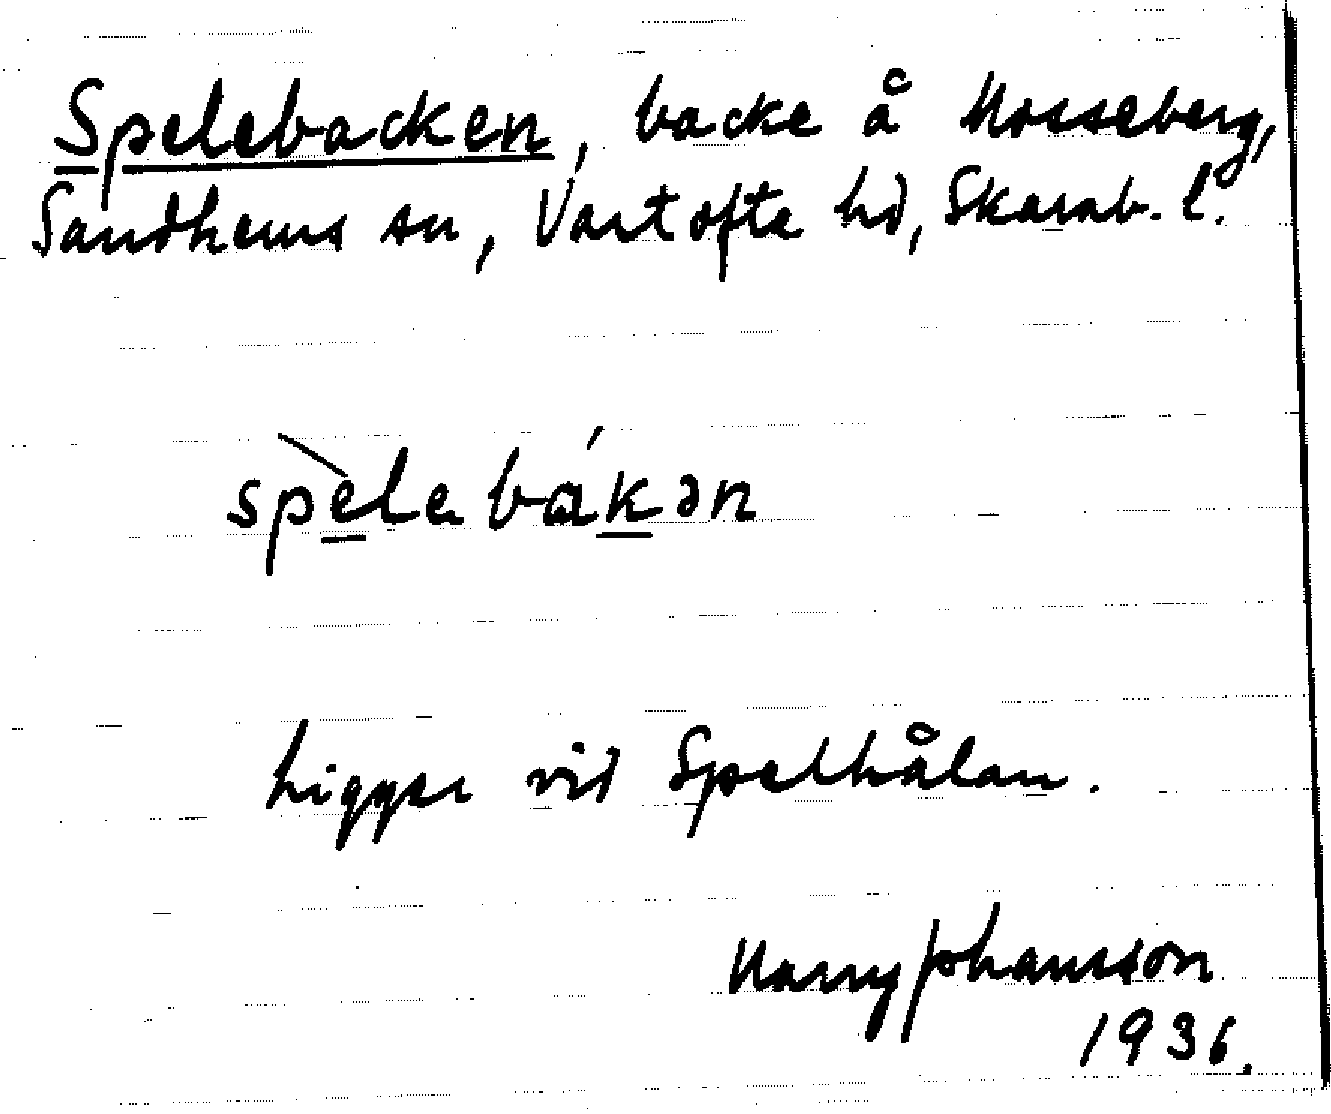 Spelebacken, backe å Mosseberg,
Sandhems sn, Vartofte hd, Skarab. l.
spèlebákən
Ligger vid Spelhålan.
Harry Johansson
1936.